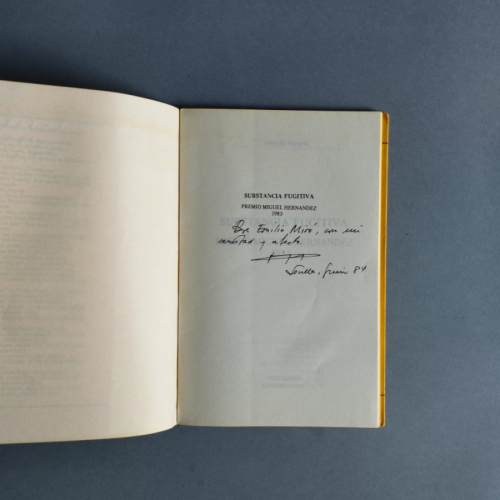 SUBSTANCIA FUGITIVA
PREMIO MIGUEL HERNANDEZ
1983
Para Emilio Miró, con mi
amistad y afecto.
Sevilla, Junio 84